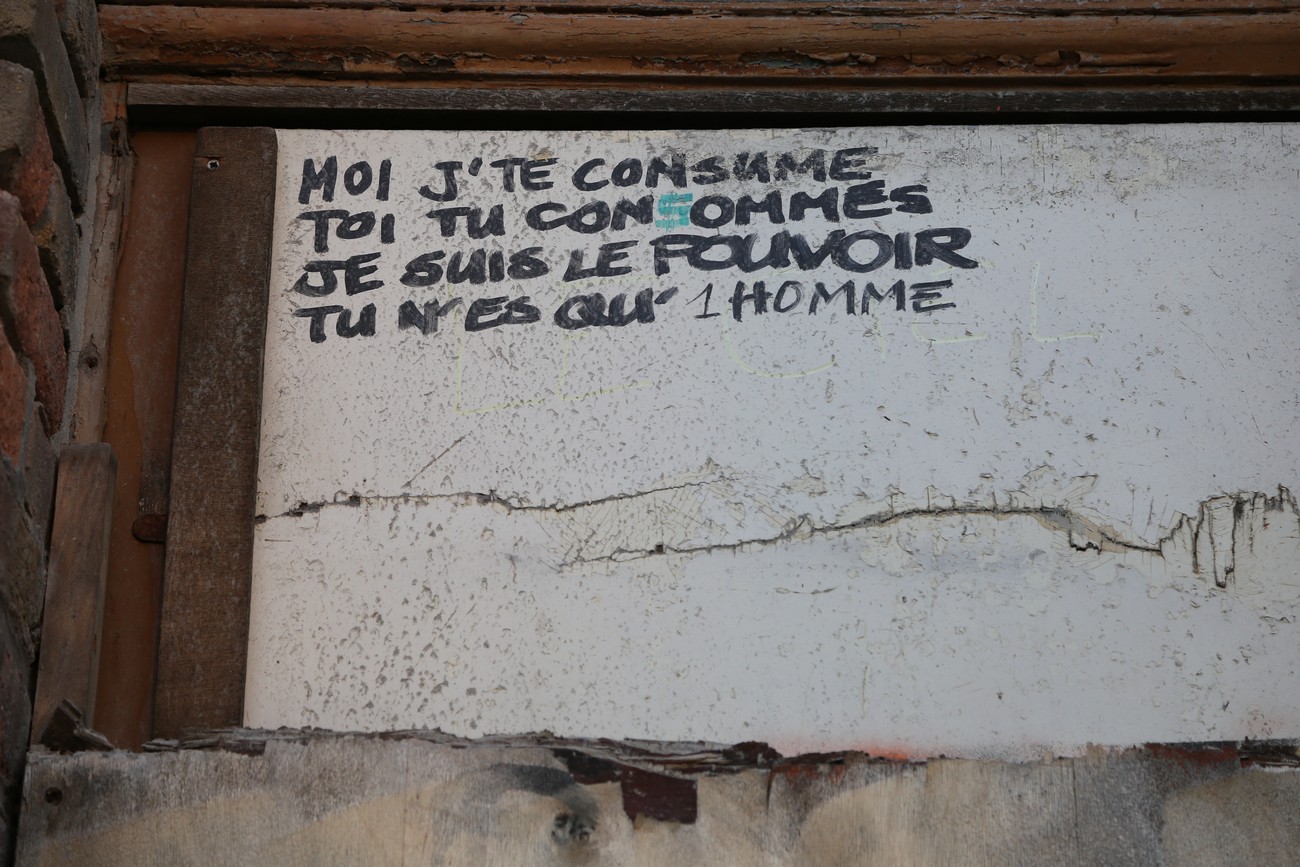 MOI J'TE CONSUME
TOI TU CONSOMMES
JE SUIS LE POUVOIR
TU N'ES QU' 1 HOMME